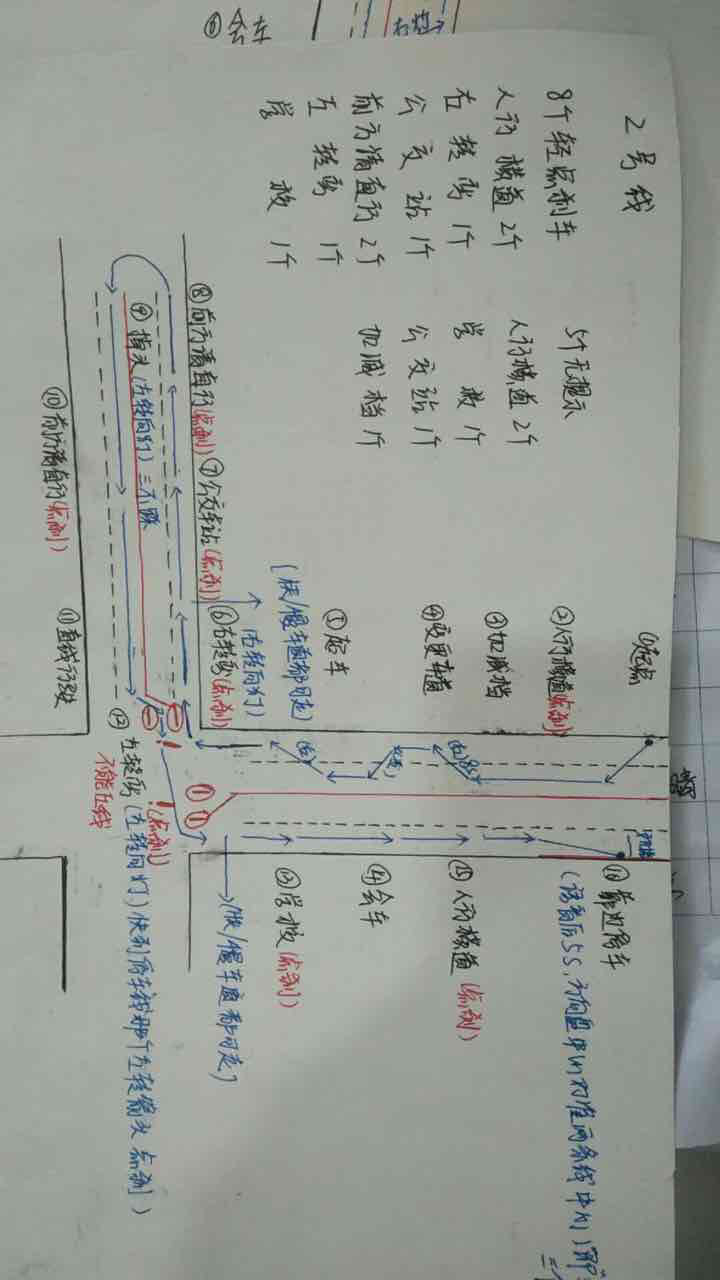 2号线
8个轻点刹车
人行横道 2个
右转弯 1个
公交站 1个
前方请直行 2个
左转弯 1个
学校 1个
5个无提示
人行横道 2个
学校 1个
公交站 1个
加减档 1个
①起点
②人行横道(点刹)
③加减档
④变更车道
⑤超车
(快/慢车道都可走)
(右转向灯)
⑥右转弯(点刹)
⑦公交车站(点刹)
⑧前方请直行(点刹)
⑨掉头(左转向灯)
⑩前方请直行(点刹)
⑪直线行驶
⑫左转弯(左转向灯)快到停车线那个左转箭头点刹)
!(点刹)
不能压线
(快/慢车道都可走)
⑬学校(点刹)
⑭会车
⑮人行横道(点刹)
⑯靠边停车
(语音后5S,方向盘中心对准两条线中心)
⑧会车